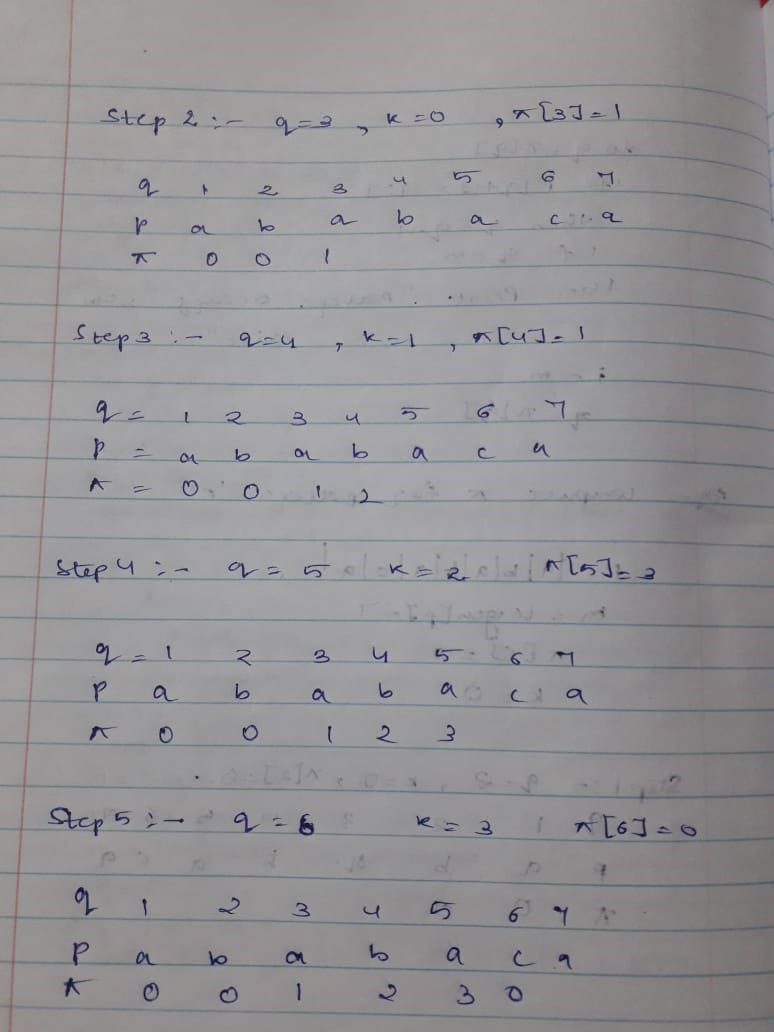 Step 2 :- q=3 , k=0 , π[3]=1
q 1 2 3 4 5 6 7
P a b a b a c a
π 0 0 1
Step 3 :- q=4 , k=1 , π[4]=1
q = 1 2 3 4 5 6 7
P = a b a b a c a
π = 0 0 1 2
Step 4 :- q = 5 k = 2 π[5]=3
q = 1 2 3 4 5 6 7
P a b a b a c a
π 0 0 1 2 3
Step 5 :- q = 6 k = 3 π[6]=0
q 1 2 3 4 5 6 7
P a b a b a c a
π 0 0 1 2 3 0